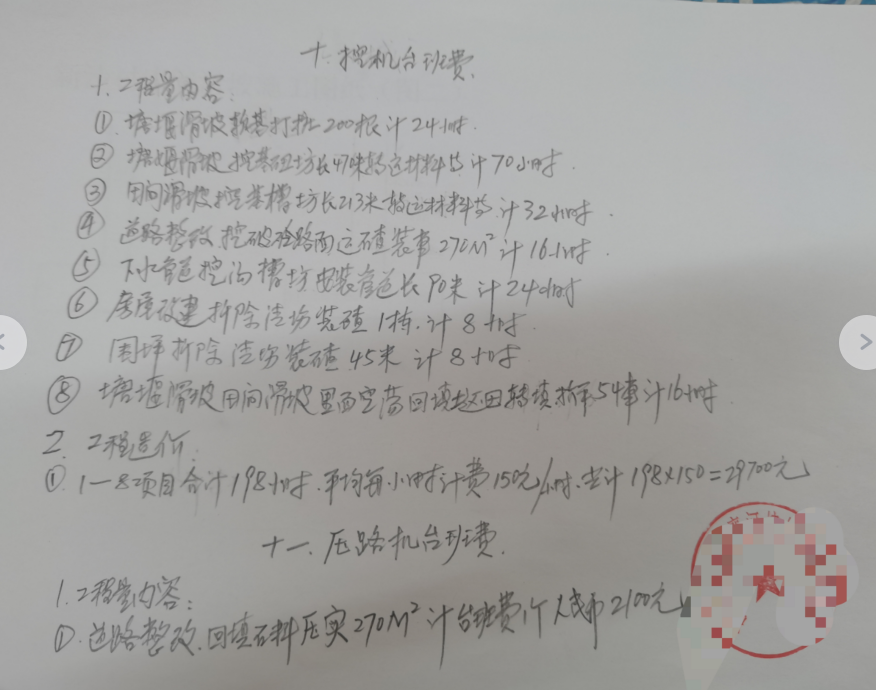 十.挖机台班费.
1.工程量内容:
① 塘堰滑坡挖基打桩200根计24小时.
② 塘堰滑坡挖基础坊长47米转运材料等计70小时.
③ 田间滑坡挖基槽坊长213米转运材料等.计32小时.
④ 道路整改.挖破砼路面运碴装车270M²计16小时.
⑤ 下水管道挖沟槽坊安装管道长90米计24小时
⑥ 房屋改建拆除清场装碴1栋.计8小时.
⑦ 围坪拆除清场装碴45米计8小时.
⑧ 塘堰滑坡田间滑坡里面空荡回填 田转填拆平54车计16小时.
2.工程造价:
①.1—8项目合计198小时.平均每小时计费150元/小时.共计198×150=29700元
十一.压路机台班费.
1.工程量内容:
①.道路整改.回填石料压实270M²计台班费1个人民币2100元